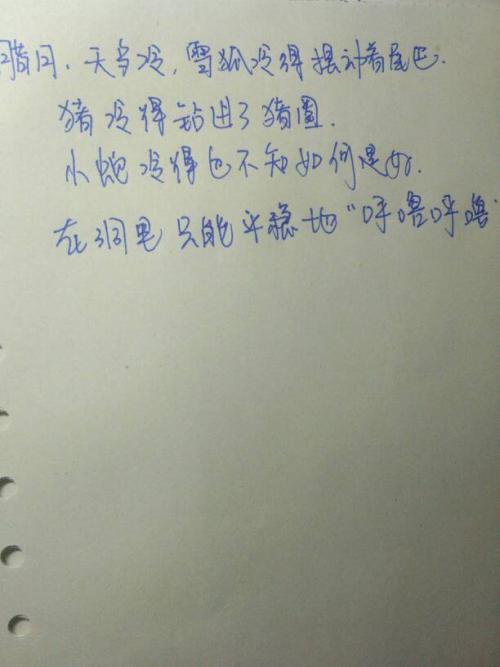 腊月,天气冷,雪狐冷得摆动着尾巴.
猪冷得钻进了猪圈.
小蛇冷得也不知如何是好.
在洞里只能平稳地“呼噜呼噜”